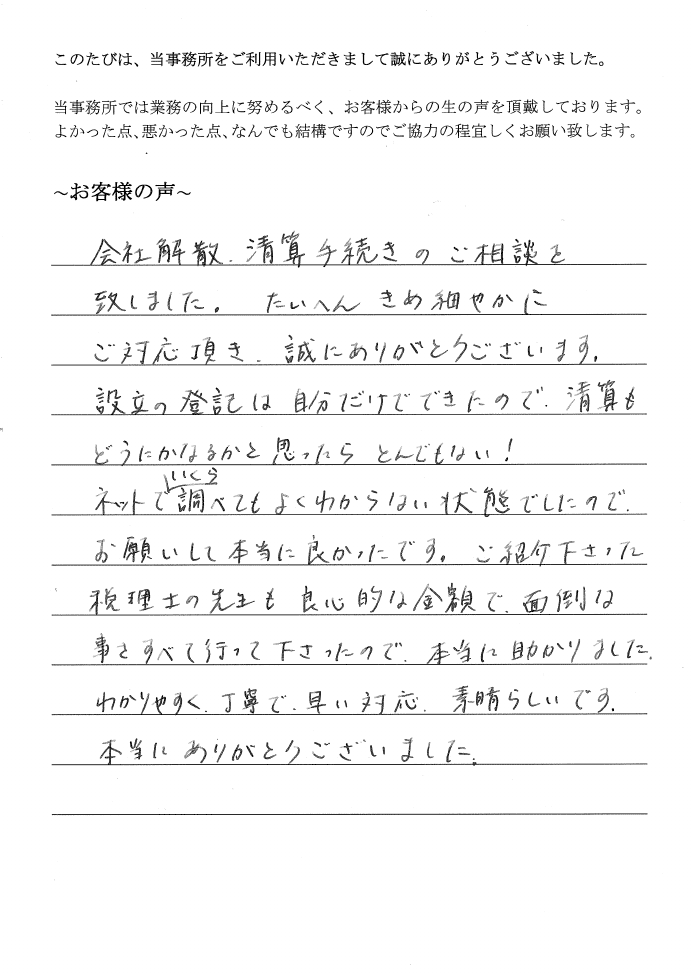 このたびは、当事務所をご利用いただきまして誠にありがとうございました。
当事務所では業務の向上に努めるべく、お客様からの生の声を頂戴しております。
よかった点、悪かった点、なんでも結構ですのでご協力の程宜しくお願い致します。
~お客様の声~
会社解散、清算手続きのご相談を
致しました。たいへんきめ細やかに
ご対応頂き、誠にありがとうございます。
設立の登記は自分だけでできたので、清算も
どうにかなるかと思ったらとんでもない!
ネットでいくら調べてもよくわからない状態でしたので、
お願いして本当に良かったです。ご紹介下さった
税理士の先生も良心的な金額で、面倒な
事をすべて行って下さったので、本当に助かりました。
わかりやすく、丁寧で、早い対応、素晴らしいです。
本当にありがとうございました。